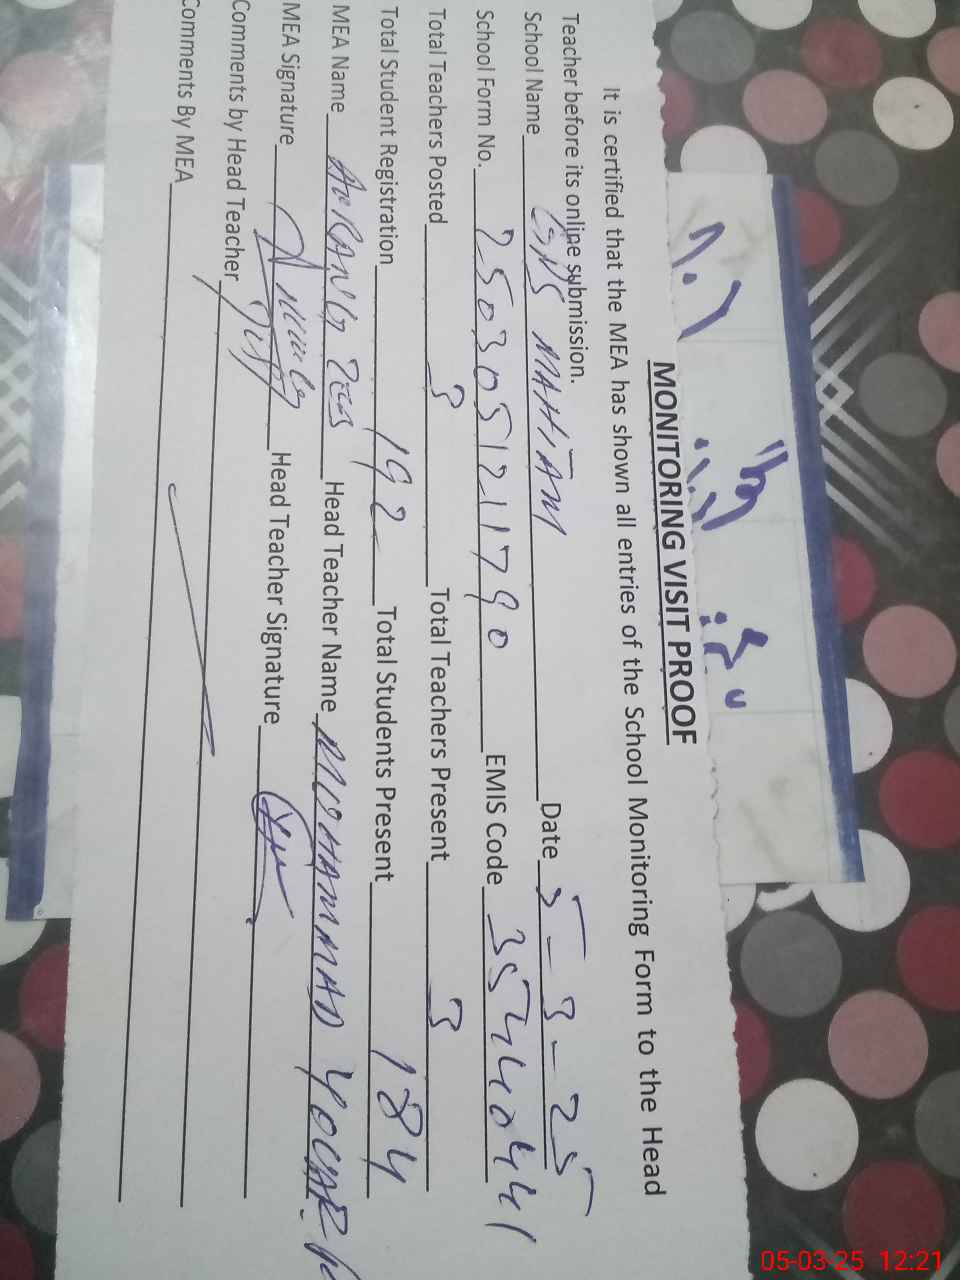 MONITORING VISIT PROOF
It is certified that the MEA has shown all entries of the School Monitoring Form to the Head
Teacher before its online submission.
School Name GPS MAHTAM Date 5-3-25
School Form No. 2503051211790 EMIS Code 35440441
Total Teachers Posted 3 Total Teachers Present 3
Total Student Registration 192 Total Students Present 184
MEA Name Head Teacher Name MUHAMMAD
MEA Signature Head Teacher Signature
Comments by Head Teacher
Comments By MEA
05-03-25 12:21